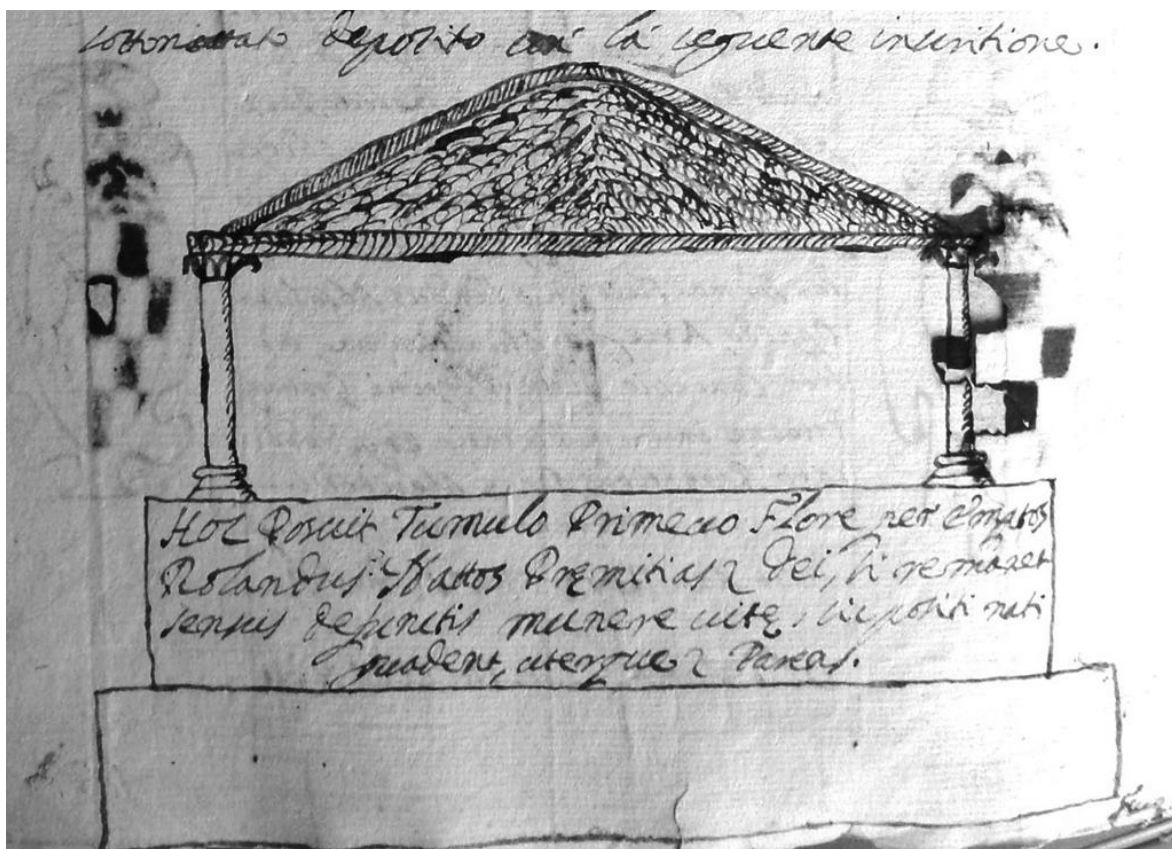 sottonottato deposito con la seguente inscritione.
Hoc Posuit Tumulo Primeuo Flore per Emptos
Rolandus Nattos Premitias Dei, si remanet
sensus defunctis munere uitę, impositi nati
gaudent, uterque Parens.